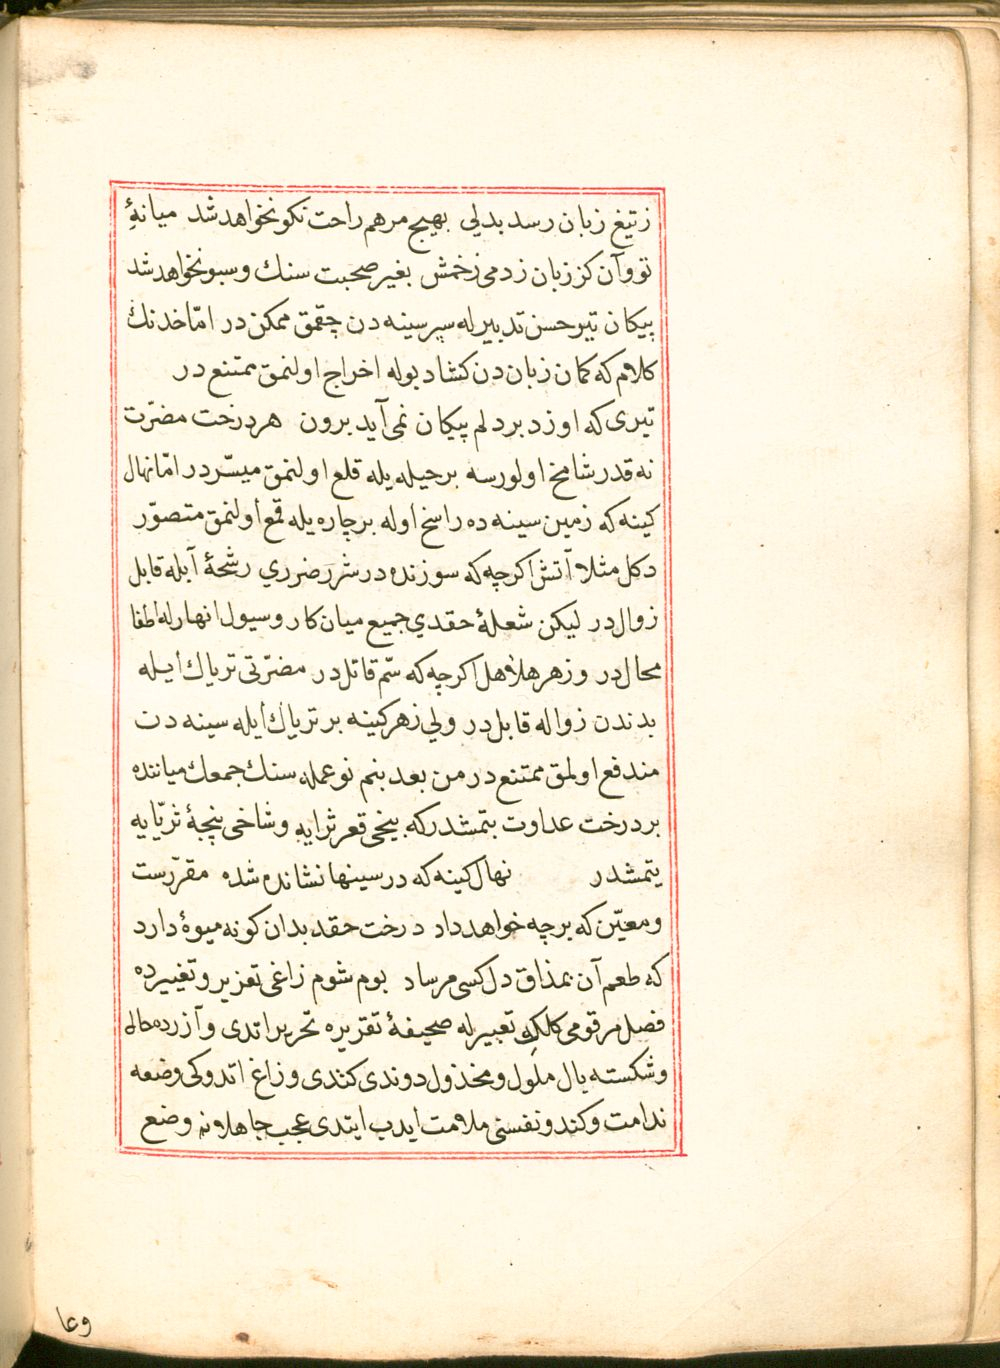 زتیغ زبان رسد بدلی بهیچ مرهم راحت نکو نخواهد شد میانهٔ
تو وآن کز زبان زدمی زخمش بغیر صحبت سنك وسبو نخواهد شد
پیکان تیر حسن تدبیرله سپر سینه دن چقمق ممکن در امّا خدنك
کلام که کمان زبان دن کشاد بوله اخراج اولنمق ممتنع در
تیری که او زد بر دلم پیکان نمی آید برون هر درخت مضرّت
نه قدر شامخ اولورسه بر حیله یله قلع اولنمق میسّردر امّا نهال
کینه که زمین سینه ده راسخ اوله بر چاره یله قمع أولنمق متصوّر
دکل مثلا آتش اکرچه که سوزنده در شرر ضرری رشحهٔ آبله قابل
زوال در لیکن شعلهٔ حقدی جمیع میان کار وسیول انهارله اطفا
محال در وزهر هلاهل اکرچه که سّم قاتل در مضرّتی تریاك أیله
بدندن زواله قابل در ولی زهر کینه بر تریاك أیله سینه دن
مندفع اولمق ممتنع در من بعد بنم نوعمله سنك جمعك میاننده
بر درخت عداوت بتمشدر که بیخی قعر ثرایه وشاخی پنجهٔ ثریّایه
یتمشدر نهال کینه که در سینها نشانده شده مقرّرست
ومعیّن که بر چه خواهد داد درخت حقد بدان کونه میوهٔ دارد
که طعم آن بمذاق دل کسی مرساد بوم شوم زاغی تعزیر وتغییرده
فصل مرقومی کلك تعبیرله صحیفهٔ تقریره تحریر اتدی وآزرده حال
وشکسته بال ملول ومخذول دوندی کندی وزاغ اتدوکی وضعه
ندامت وکندو نفسنی ملامت ایدب ایتدی عجب جاهلانه وضع
وعا